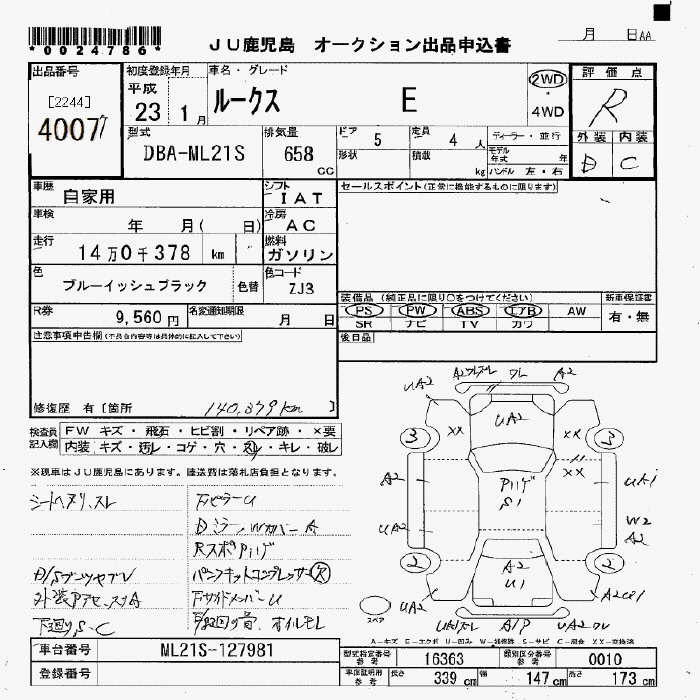 *0024786*
JU鹿児島 オークション出品申込書
月 日AA
出品番号
[2244]
4007
初度登録年月
平成
23 1月
車名・グレード
ルークス E
2WD
・
4WD
評価点
R
外装 内装
D C
型式
DBA-ML21S
排気量
658
CC
ドア 5
定員 4 人
形状
積載 kg
ディーラー・並行
モデル年式 年
ハンドル 左・右
車歴
自家用
シフト
IAT
セールスポイント(正常に機能するものに限ります)
車検
年 月( 日)
冷房
AC
走行
14万0千378 km
燃料
ガソリン
色
ブルーイッシュブラック
色替
色コード
ZJ3
装備品(純正品に限り○をつけてください)
新車保証書
PS PW ABS エアB AW
有・無
SR ナビ TV カワ
R券
9,560円
名変通知期限
月 日
後日品
注意事項申告欄(不具合内容等は具体的に記入して下さい)
修復歴 有[箇所 ]
140,379km
検査員
記入欄
FW キズ・飛石・ヒビ割・リペア跡・×要
内装 キズ・汚レ・コゲ・穴・スレ・キレ・破レ
※現車はJU鹿児島にあります。陸送費は落札店負担となります。
シートヘタリ、スレ
下ピラーU
Dミラー、Wカバー A
RスポPハゲ
パンクキットコンプレッサー欠
下サイドメンバーU
下廻りS-C
オイルモレ
UA2 A2 A2
UA2
XX XX
3 3
XX
A2 Pハゲ UA1
S1
UA2 W2
A2
2 A2 2
U1
UA2 A/P
スペア
A-キズ E-エクボ U-凹み W-補修跡 S-サビ C-腐食 XX-交換済
車台番号
ML21S-127981
登録番号
型式指定番号
参考
16363
類別区分番号
参考
0010
車庫証明用
参考
長さ 339 cm 幅 147 cm 高さ 173 cm